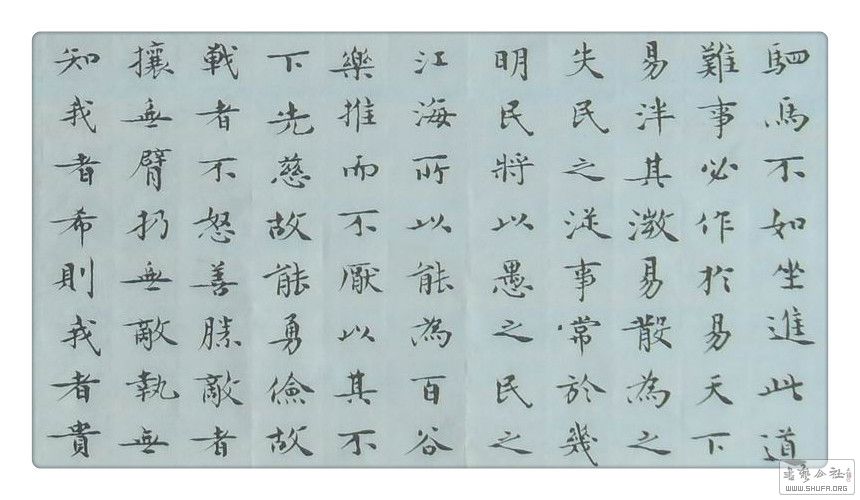 駟馬不如坐進此道
難事必作於易天下
易泮其微易散為之
失民之從事常於幾
明民將以愚之民之
江海所以能為百谷
樂推而不厭以其不
下先慈故能勇儉故
戰者不怒善勝敵者
攘無臂扔無敵執無
知我者希則我者貴
WWW.SHUFA.ORG